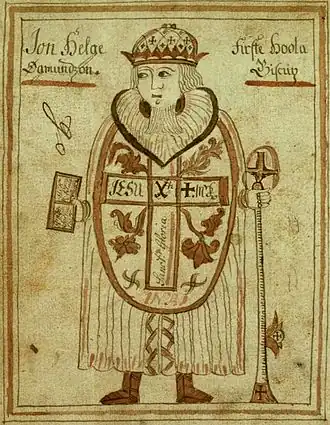 Jon Helge
Ogmundzon.
Firste Hoola
Biscup
JESU X + MEA
Gloria